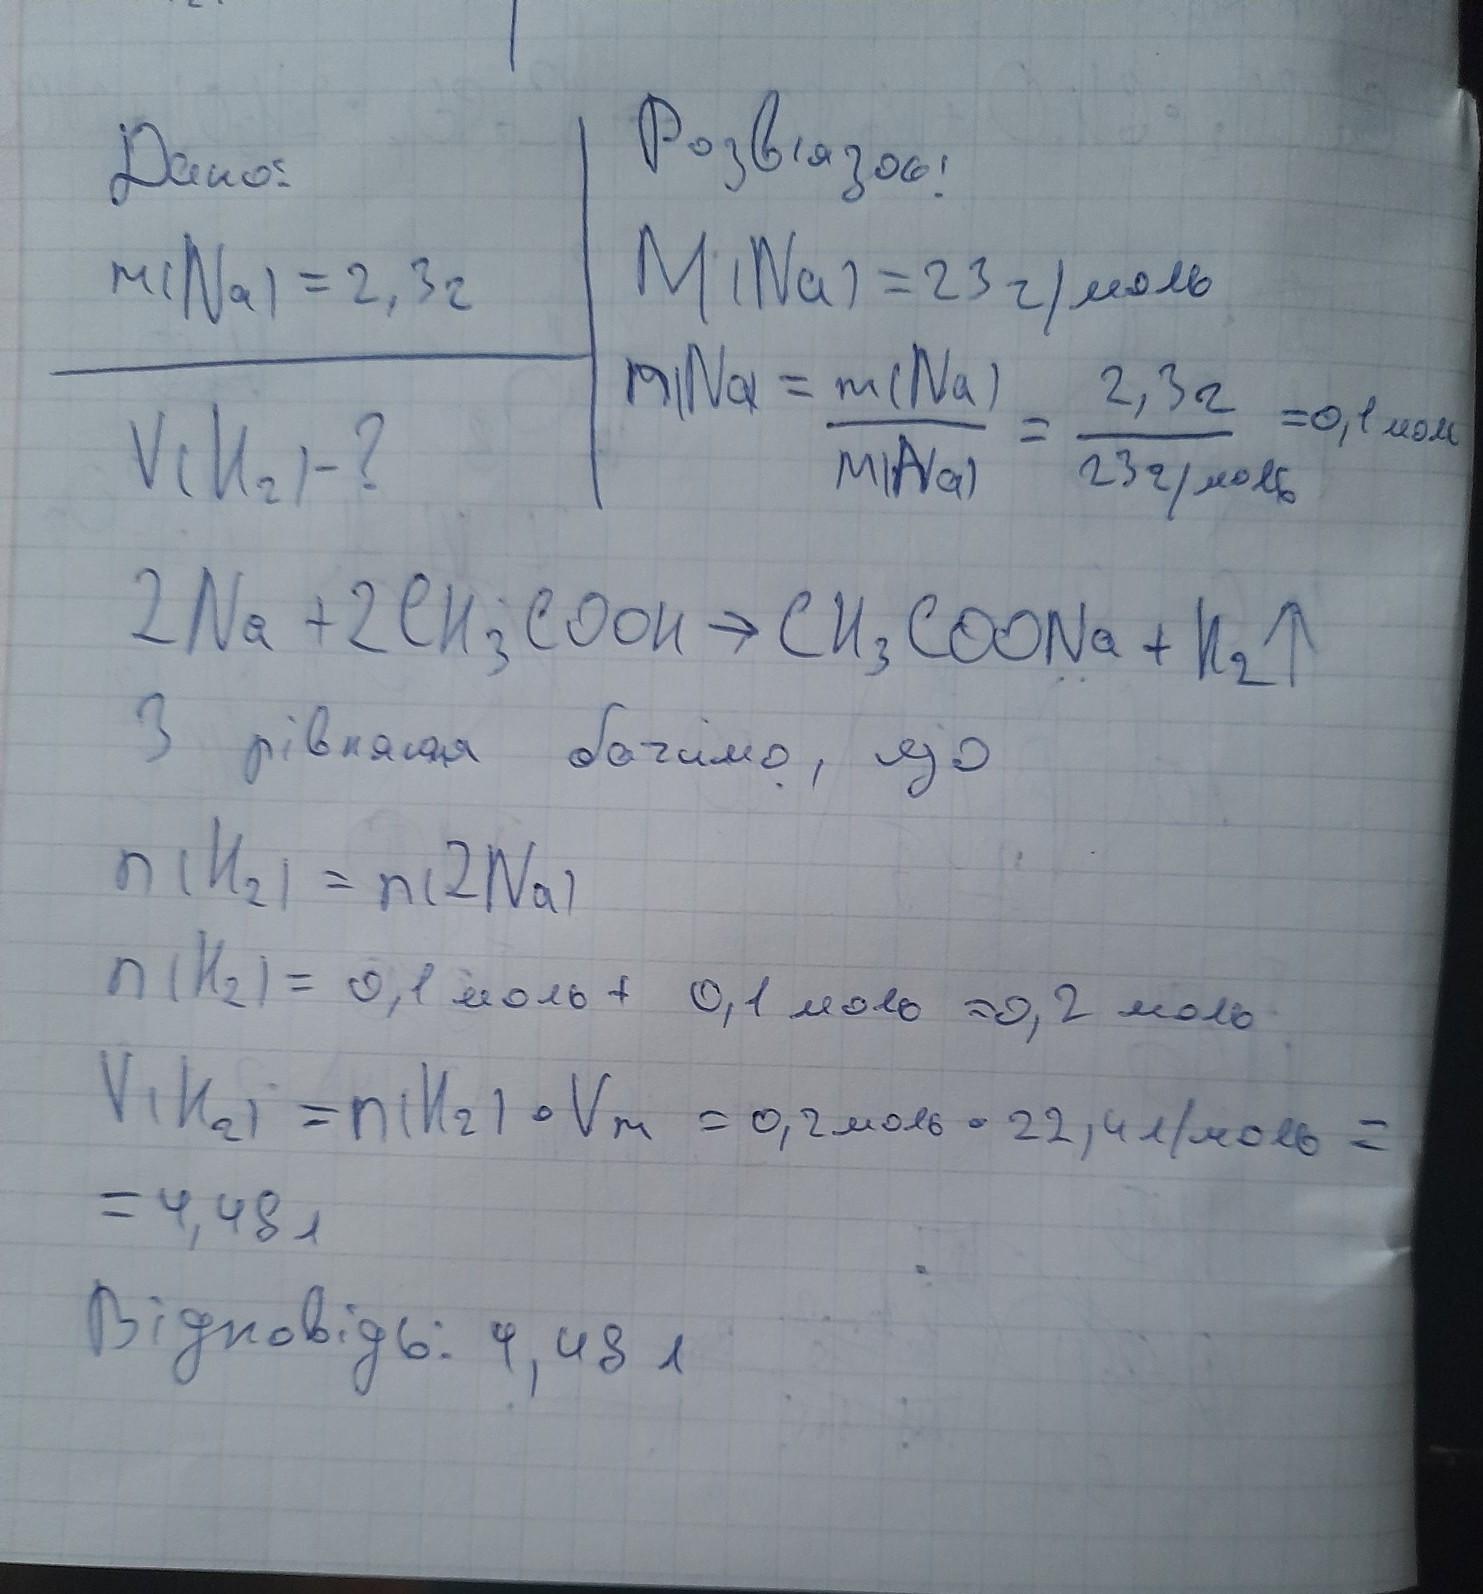 Дано:
m(Na) = 2,3г
V(H₂)-?
Розв'язок:
M(Na) = 23 г/моль
n(Na) = m(Na)/M(Na) = 2,3г/23г/моль = 0,1 моль
2Na + 2CH₃COOH → CH₃COONa + H₂↑
З рівняння бачимо, що
n(H₂) = n(2Na)
n(H₂) = 0,1 моль + 0,1 моль = 0,2 моль
V(H₂) = n(H₂) • Vm = 0,2 моль • 22,4 л/моль =
= 4,48 л
Відповідь: 4,48 л